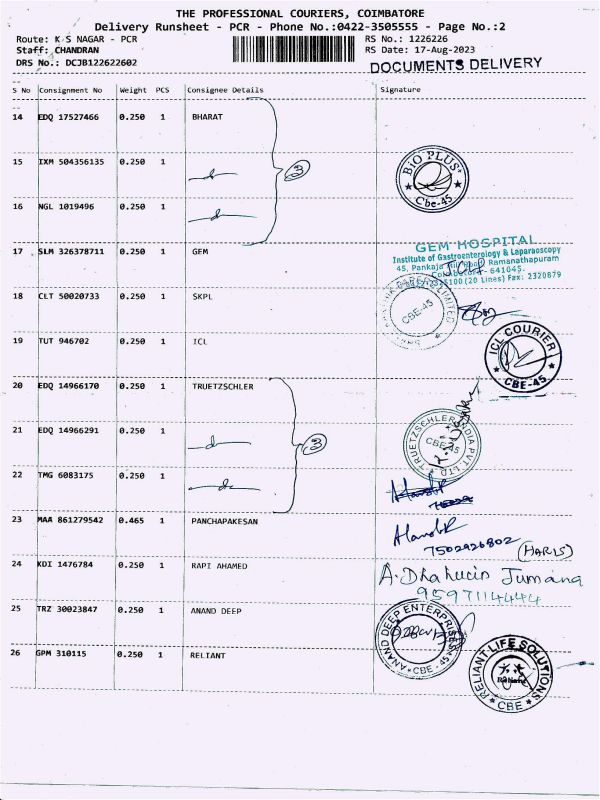 THE PROFESSIONAL COURIERS, COIMBATORE
Delivery Runsheet - PCR - Phone No.:0422-3505555 - Page No.:2
Route: K S NAGAR - PCR RS No.: 1226226
Staff: CHANDRAN RS Date: 17-Aug-2023
DRS No.: DCJB122622602 DOCUMENTS DELIVERY
S No Consignment No Weight PCS Consignee Details Signature
14 EDQ 17527466 0.250 1 BHARAT
15 IXM 504356135 0.250 1 3 BiO PLUS+ Cbe-45
16 NGL 1019496 0.250 1
17 SLM 326378711 0.250 1 GEM GEM HOSPITAL
Institute of Gastroenterology & Laparaoscopy
45, Pankaja Ramanathapuram
641045.
100 (20 Lines) Fax: 2320879
18 CLT 50020733 0.250 1 SKPL LIMITED CBE-45
19 TUT 946702 0.250 1 ICL ICL COURIER CBE-45
20 EDQ 14966170 0.250 1 TRUETZSCHLER
21 EDQ 14966291 0.250 1 3 TRUETZSCHLER INDIA PVT LTD CBE-45
22 TMG 6083175 0.250 1
23 MAA 861279542 0.465 1 PANCHAPAKESAN
7502926802 (HARIS)
24 KDI 1476784 0.250 1 RAPI AHAMED A. Jumana
9597114444
25 TRZ 30023847 0.250 1 ANAND DEEP ANAND DEEP ENTERPRISES CBE-45
26 GPM 310115 0.250 1 RELIANT RELIANT LIFE SOLUTIONS CBE